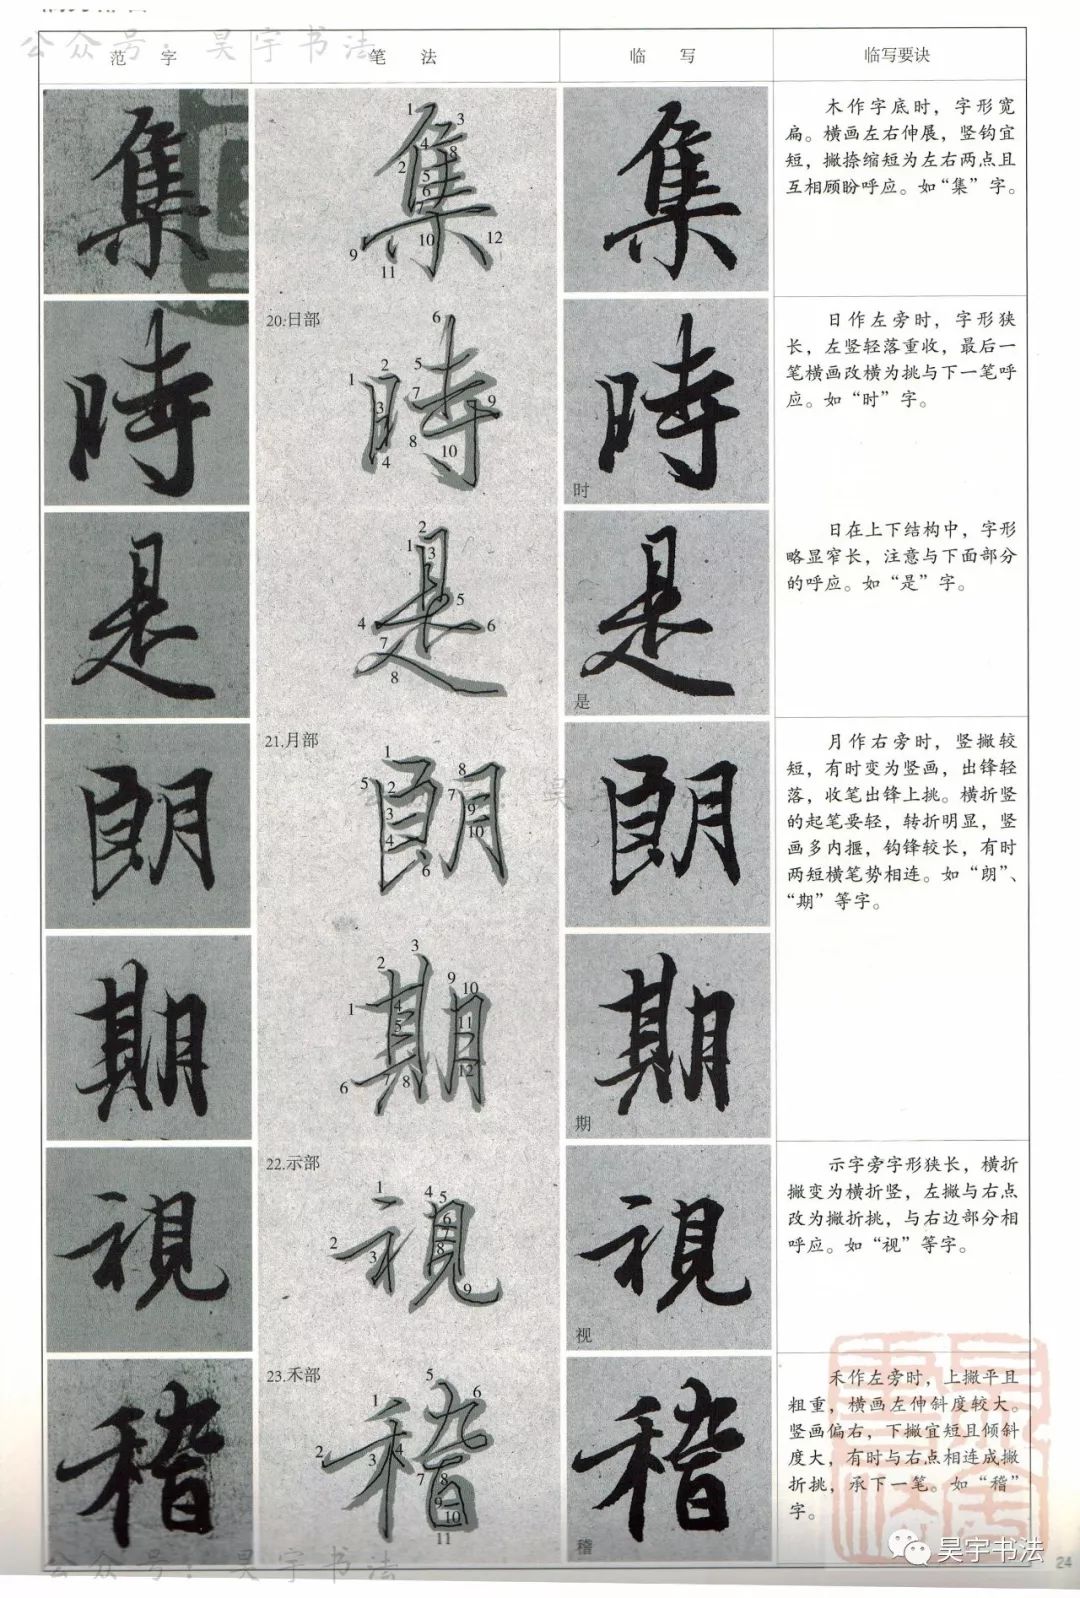 公众号：昊宇书法
范 字
笔 法
临 写
临写要诀
集
1
3
4
8
2
5
6
7
1
9
10
11
12
集
木作字底时，字形宽
扁。横画左右伸展，竖钩宜
短，撇捺缩短为左右两点且
互相顾盼呼应。如“集”字。
時
20.日部
6
2
5
1
7
3
9
8
4
10
時
时
日作左旁时，字形狭
长，左竖轻落重收，最后一
笔横画改横为挑与下一笔呼
应。如“时”字。
是
2
1
3
5
4
6
7
8
是
是
日在上下结构中，字形
略显窄长，注意与下面部分
的呼应。如“是”字。
朗
21.月部
1
8
5
2
7
3
9
4
10
6
朗
月作右旁时，竖撇较
短，有时变为竖画，出锋轻
落，收笔出锋上挑。横折竖
的起笔要轻，转折明显，竖
画多内擫，钩锋较长，有时
两短横笔势相连。如“朗”、
“期”等字。
期
3
2
9
10
1
4
11
5
12
6
7
8
期
期
視
22.示部
1
4
5
6
2
3
8
9
視
视
示字旁字形狭长，横折
撇变为横折竖，左撇与右点
改为撇折挑，与右边部分相
呼应。如“视”等字。
稽
23.禾部
5
1
6
2
4
3
7
8
9
10
11
稽
稽
禾作左旁时，上撇平且
粗重，横画左伸斜度较大。
竖画偏右，下撇宜短且倾斜
度大，有时与右点相连成撇
折挑，承下一笔。如“稽”
字。
公众号：昊宇书法
昊宇书法
24